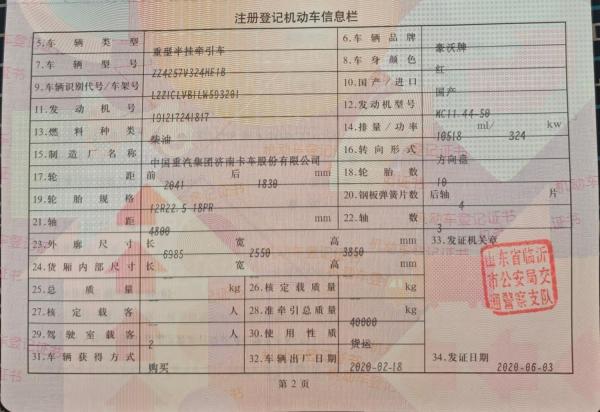 注册登记机动车信息栏
5.车辆类型 重型半挂牵引车 6.车辆品牌 豪沃牌
7.车辆型号 ZZ4257V324HE1B 8.车身颜色 红
9.车辆识别代号/车架号 LZZ1CLVB1LW593201 10.国产/进口 国产
11.发动机号 191217241817 12.发动机型号 MC11.44-50
13.燃料种类 柴油 14.排量/功率 10518 ml/ 324 kw
15.制造厂名称 中国重汽集团济南卡车股份有限公司 16.转向形式 方向盘
17.轮距 前 2041 后 1830 mm 18.轮胎数 10
19.轮胎规格 12R22.5 18PR 20.钢板弹簧片数 后轴 4 片
21.轴距 4800 mm 22.轴数 3
23.外廓尺寸 长 6985 宽 2550 高 3850 mm 33.发证机关章
24.货厢内部尺寸 长 宽 高 mm
25.总质量 kg 26.核定载质量 kg
27.核定载客 人 28.准牵引总质量 40000 kg
29.驾驶室载客 2 人 30.使用性质 货运
31.车辆获得方式 购买 32.车辆出厂日期 2020-02-18 34.发证日期 2020-06-03
山东省临沂
市公安局交
通警察支队
第2页